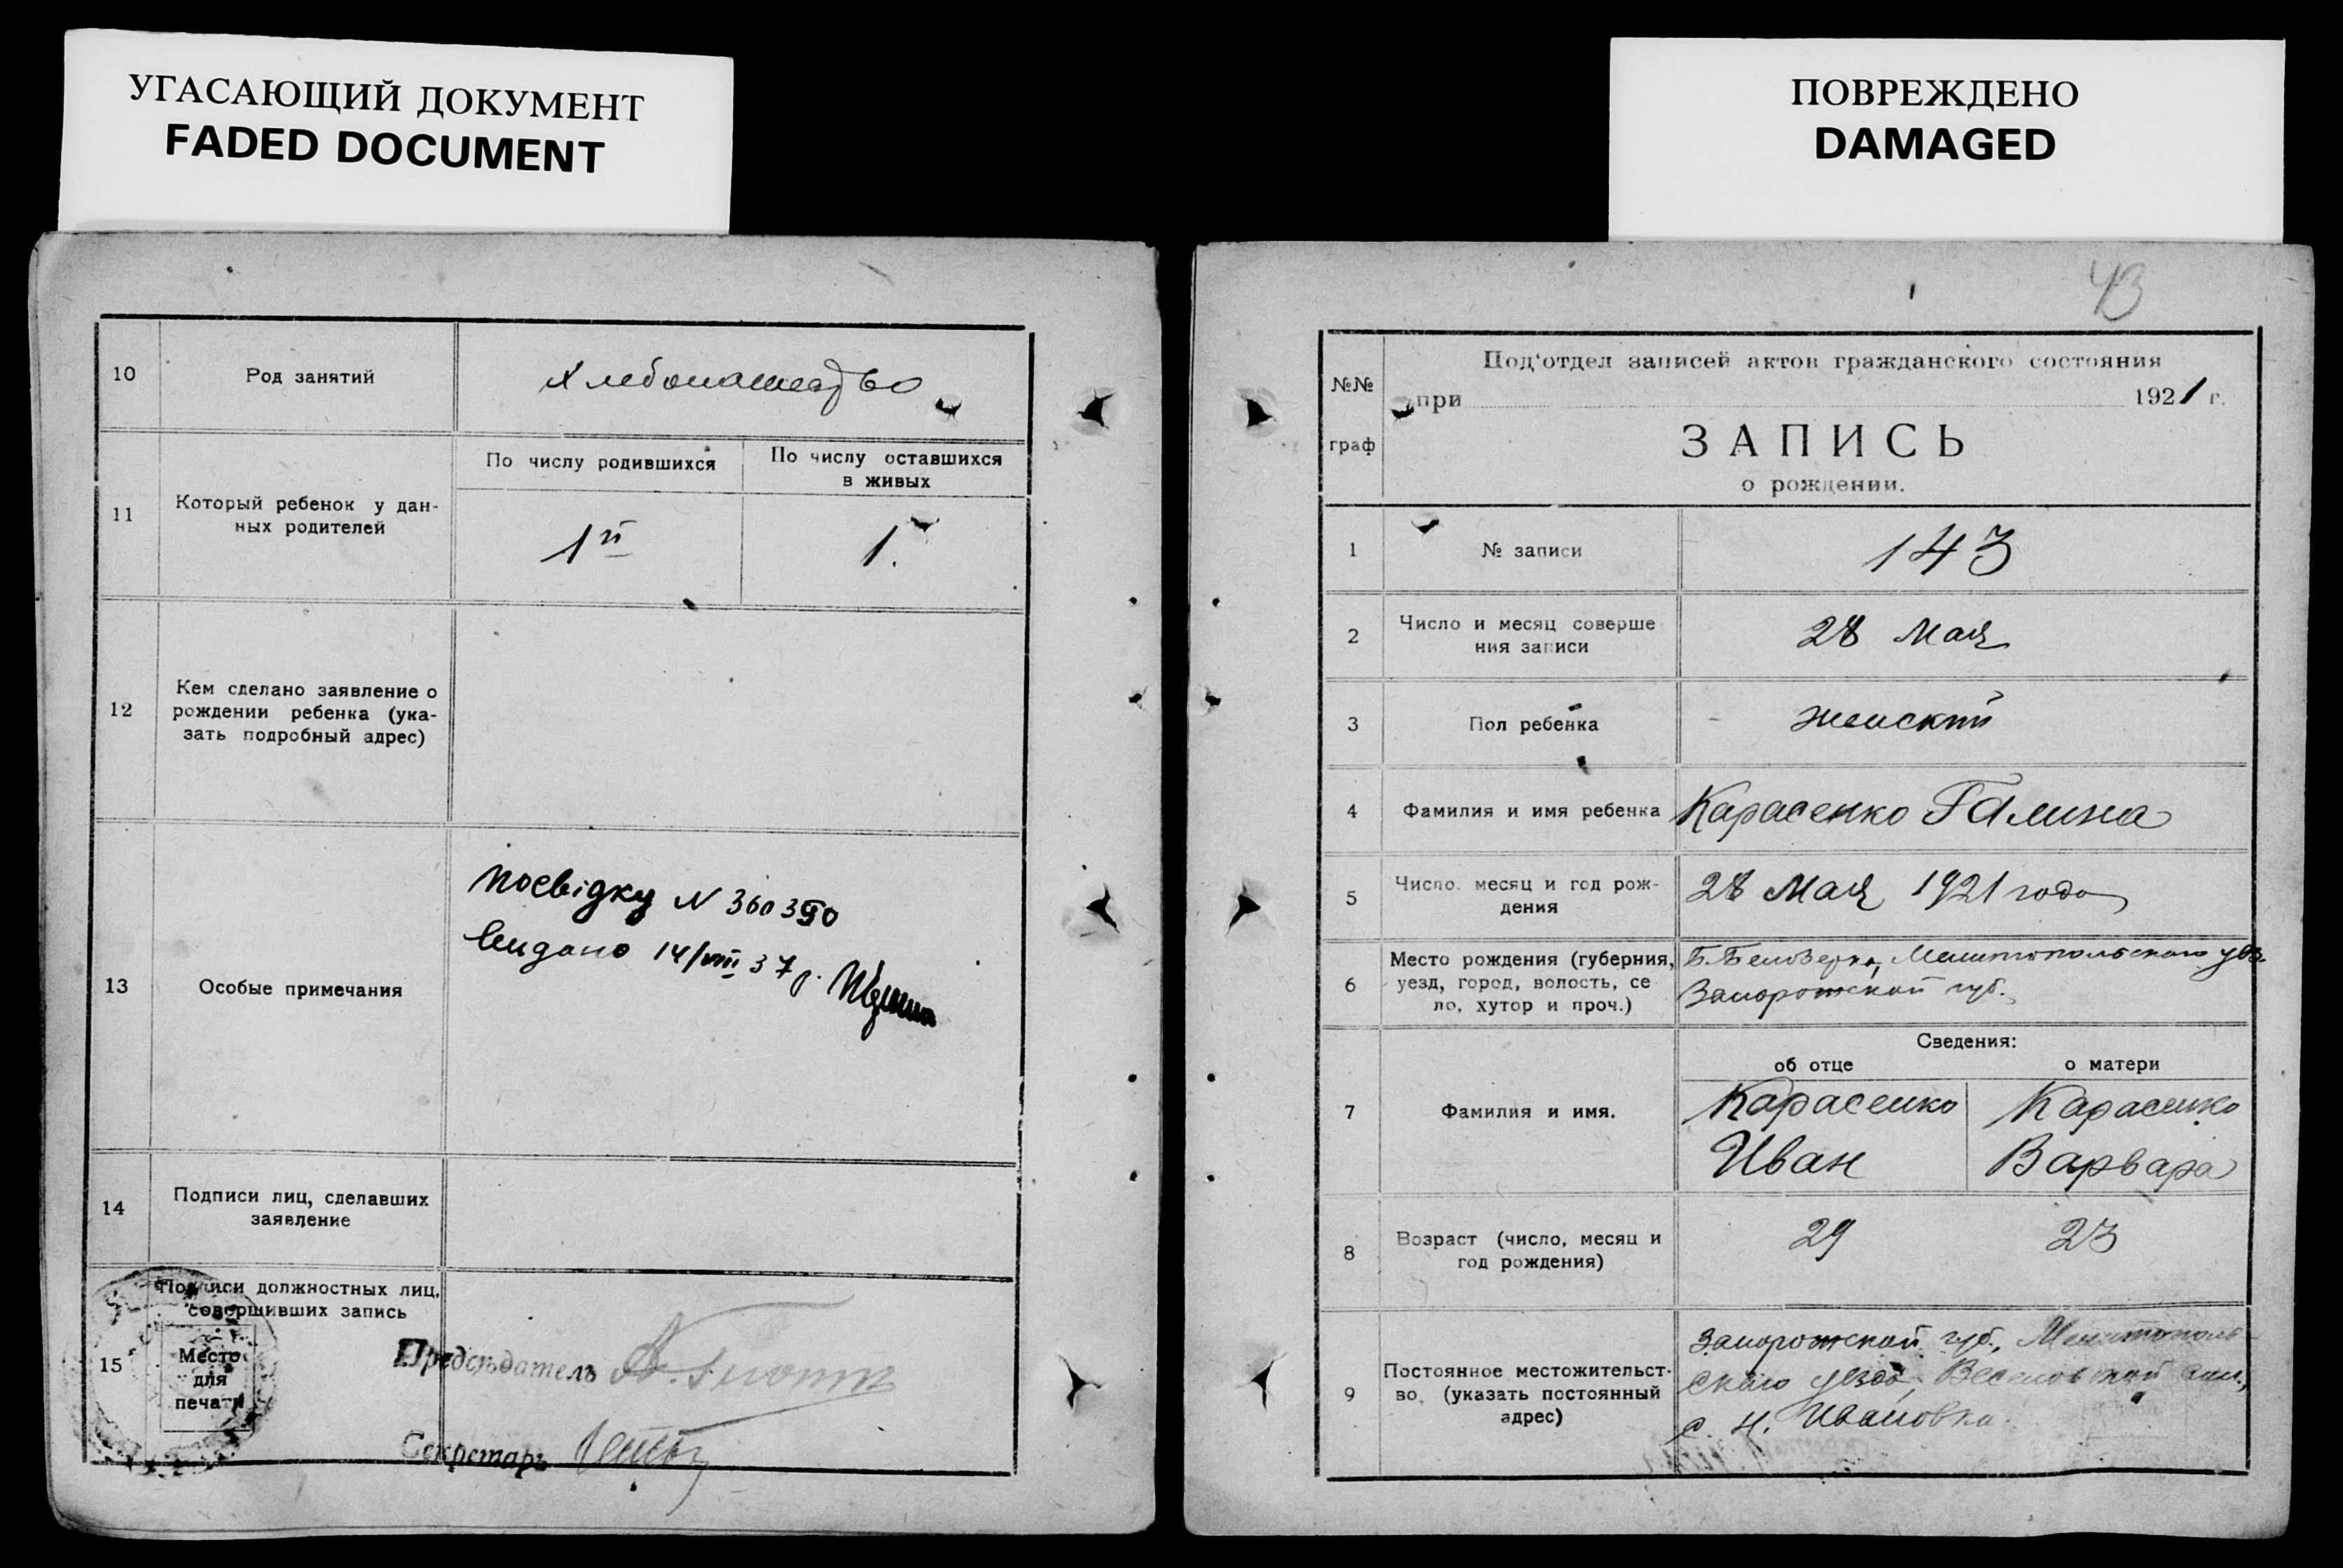 УГАСАЮЩИЙ ДОКУМЕНТ
FADED DOCUMENT
10
Род занятий
Хлебопашество
11
Который ребенок у дан-
ных родителей
По числу родившихся
По числу оставшихся
в живых
1й
1.
12
Кем сделано заявление о
рождении ребенка (ука-
зать подробный адрес)
13
Особые примечания
Посвідку N 360390
видано 14/VIII 37 р.
14
Подписи лиц, сделавших
заявление
15
Подписи должностных лиц,
совершивших запись
Место
для
печати
Председатель
Секретарь
ПОВРЕЖДЕНО
DAMAGED
43
№№
граф
Под'отдел записей актов гражданского состояния
при 1921 г.
ЗАПИСЬ
о рождении.
1
№ записи
143
2
Число и месяц соверше
ния записи
28 Мая
3
Пол ребенка
женский
4
Фамилия и имя ребенка
Карасенко Галина
5
Число, месяц и год рож-
дения
28 Мая 1921 года
6
Место рождения (губерния,
уезд, город, волость, се
ло, хутор и проч.)
Б. Белозерка, Мелитопольского уез.
Запорожской губ.
Сведения:
об отце
о матери
7
Фамилия и имя.
Карасенко
Иван
Карасенко
Варвара
8
Возраст (число, месяц и
год рождения)
29
23
9
Постоянное местожительст-
во, (указать постоянный
адрес)
Запорожской губ., Мелитополь-
ского уезда, Веселовской вол.,
с. Н. Ивановка.